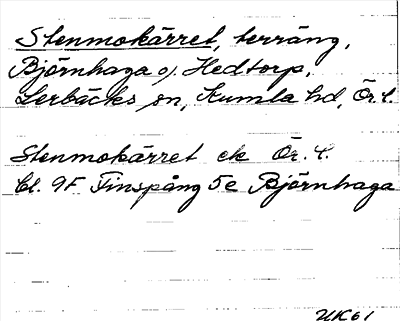 Stenmokärret, terräng,
Björnhaga o. Hedtorp,
Lerbäcks sn, Kumla hd, Ör. l.
Stenmokärret ek Ör. l.
bl. 9F Finspång 5e Björnhaga
UK61